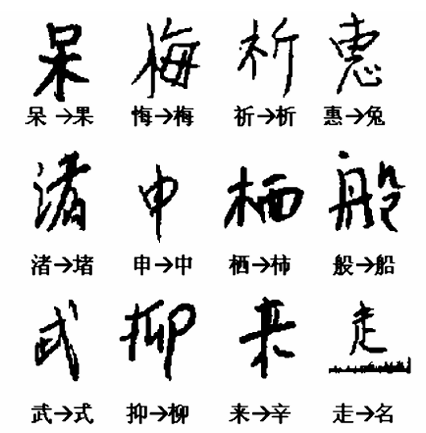 呆 梅 祈 惠
呆→果 悔→梅 祈→析 惠→兔
渚 申 栖 般
渚→堵 申→中 栖→柿 般→船
武 抑 来 走
武→式 抑→柳 来→辛 走→名